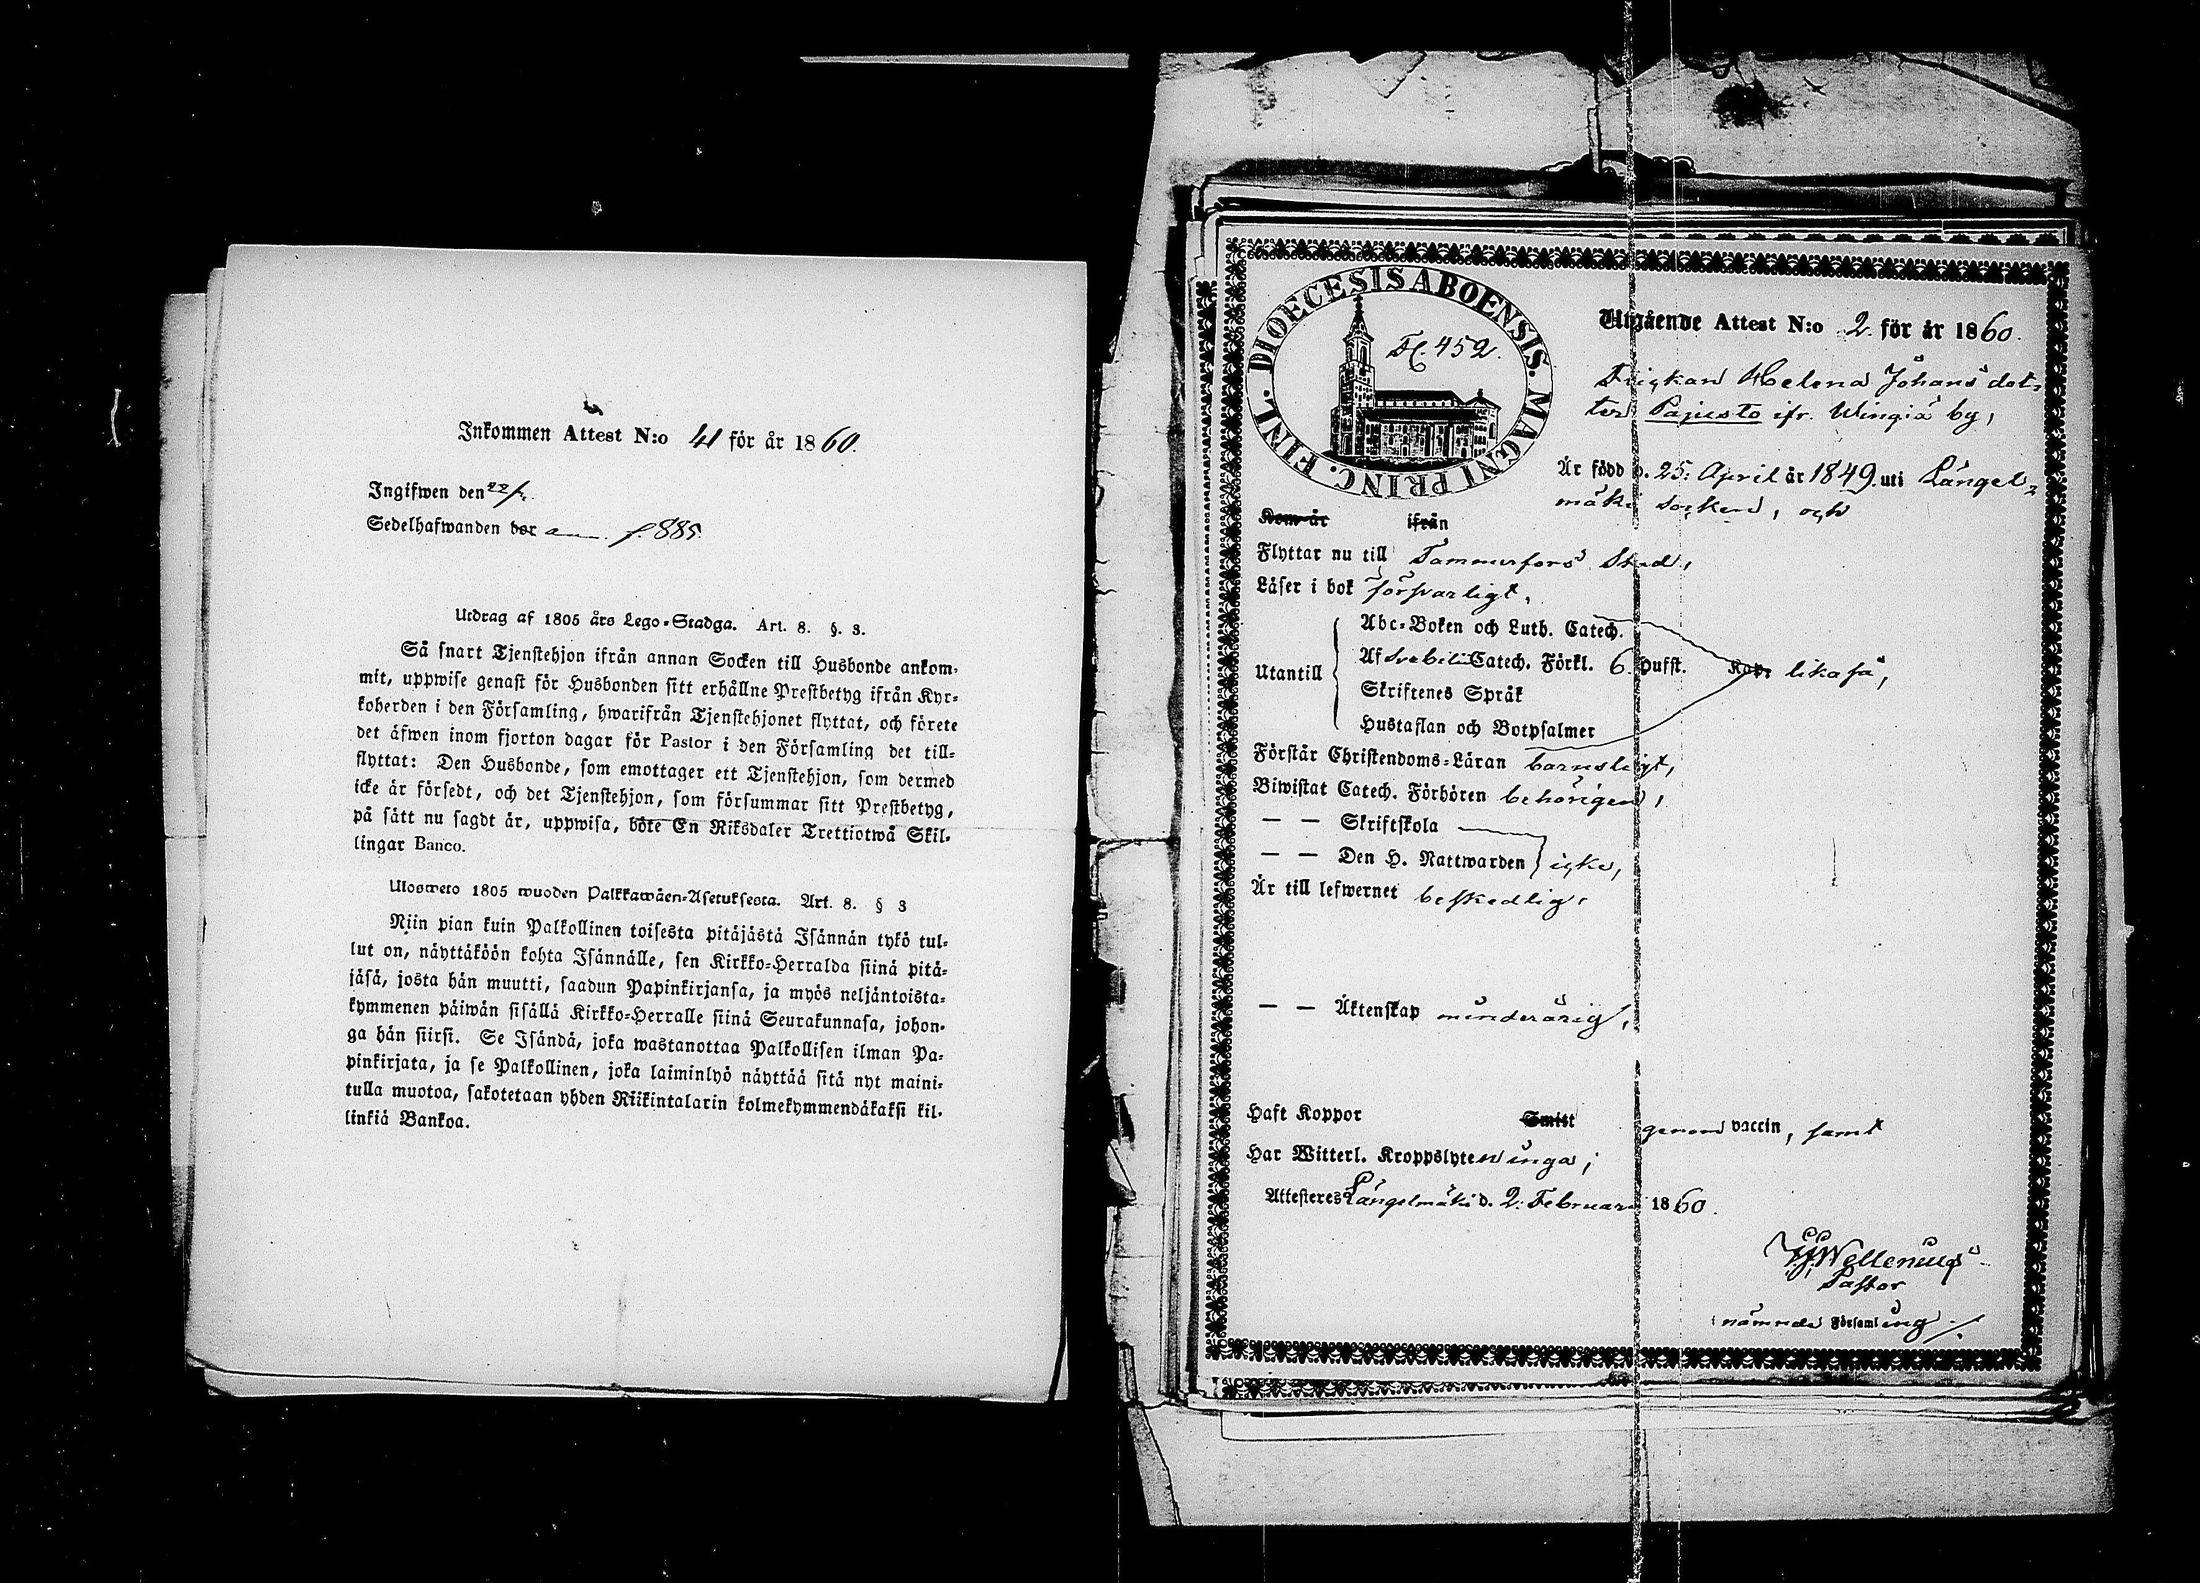 Inkommen Attest N:o 41 för år 1860.
Ingifwen den 22/2.
Sedelhafwanden bor ann. f. 885
Utdrag af 1805 års Lego-Stadga. Art. 8. §. 3.
Så snart Tjenstehjon ifrån annan Socken till Husbonde ankom-
mit, uppwise genast för Husbonden sitt erhållne Prestbetyg ifrån Kyr-
koherden i den Församling, hwarifrån Tjenstehjonet flyttat, och förete
det äfwen inom fjorton dagar för Pastor i den Församling det till-
flyttat: Den Husbonde, som emottager ett Tjenstehjon, som dermed
icke är försedt, och det Tjenstehjon, som försummar sitt Prestbetyg,
på sätt nu sagdt är, uppwisa, böte En Riksdaler Trettiotwå Skil-
lingar Banco.
Ulosweto 1805 wuoden Palkkawäen-Asetuksesta. Art. 8. § 3
Niin pian kuin Palkollinen toisesta pitäjästä Isännän tykö tul-
lut on, näyttäköön kohta Isännälle, sen Kirkko-Herralda siinä pitä-
jäsä, josta hän muutti, saadun Papinkirjansa, ja myös neljäntoista-
kymmenen päiwän sisällä Kirkko-Herralle siinä Seurakunnasa, johon-
ga hän siirsi. Se Isändä, joka wastanottaa Palkollisen ilman Pa-
pinkirjata, ja se Palkollinen, joka laiminlyö näyttää sitä nyt maini-
tulla muotoa, sakotetaan yhden Riikintalarin kolmekymmendäkaksi kil-
linkiä Bankoa.
DIOECESIS ABOENSIS. MAGNI PRINC. FINL.
F. 452.
Utgående Attest N:o 2. för år 1860.
Flickan Helena Johansdot-
ter Pajusto ifr. Wingiä by,
Är född d. 25. April år 1849. uti Längel-
mäki socken, och
Kom år ifrån
Flyttar nu till Tammerfors Stad,
Läser i bok försvarligt,
Abc-Boken och Luth. Catech.
Utantill Af Svebelii Catech. Förkl. 6 Hufst. Kap. likaså,
Skriftenes Språk
Hustaflan och Botpsalmer
Förstår Christendoms-Läran barnsligt,
Biwistat Catech. Förhören behörigen,
— — Skriftskola
— — Den H. Nattwarden icke,
Är till lefwernet beskedlig,
— — Äktenskap minderårig,
Haft Koppor Smitt genom vaccin, samt
Har Witterl. Kroppslyten inga;
Attesteres Längelmäki d. 2. Februari 1860.
Wellenius
Pastor
i nämnde Församling